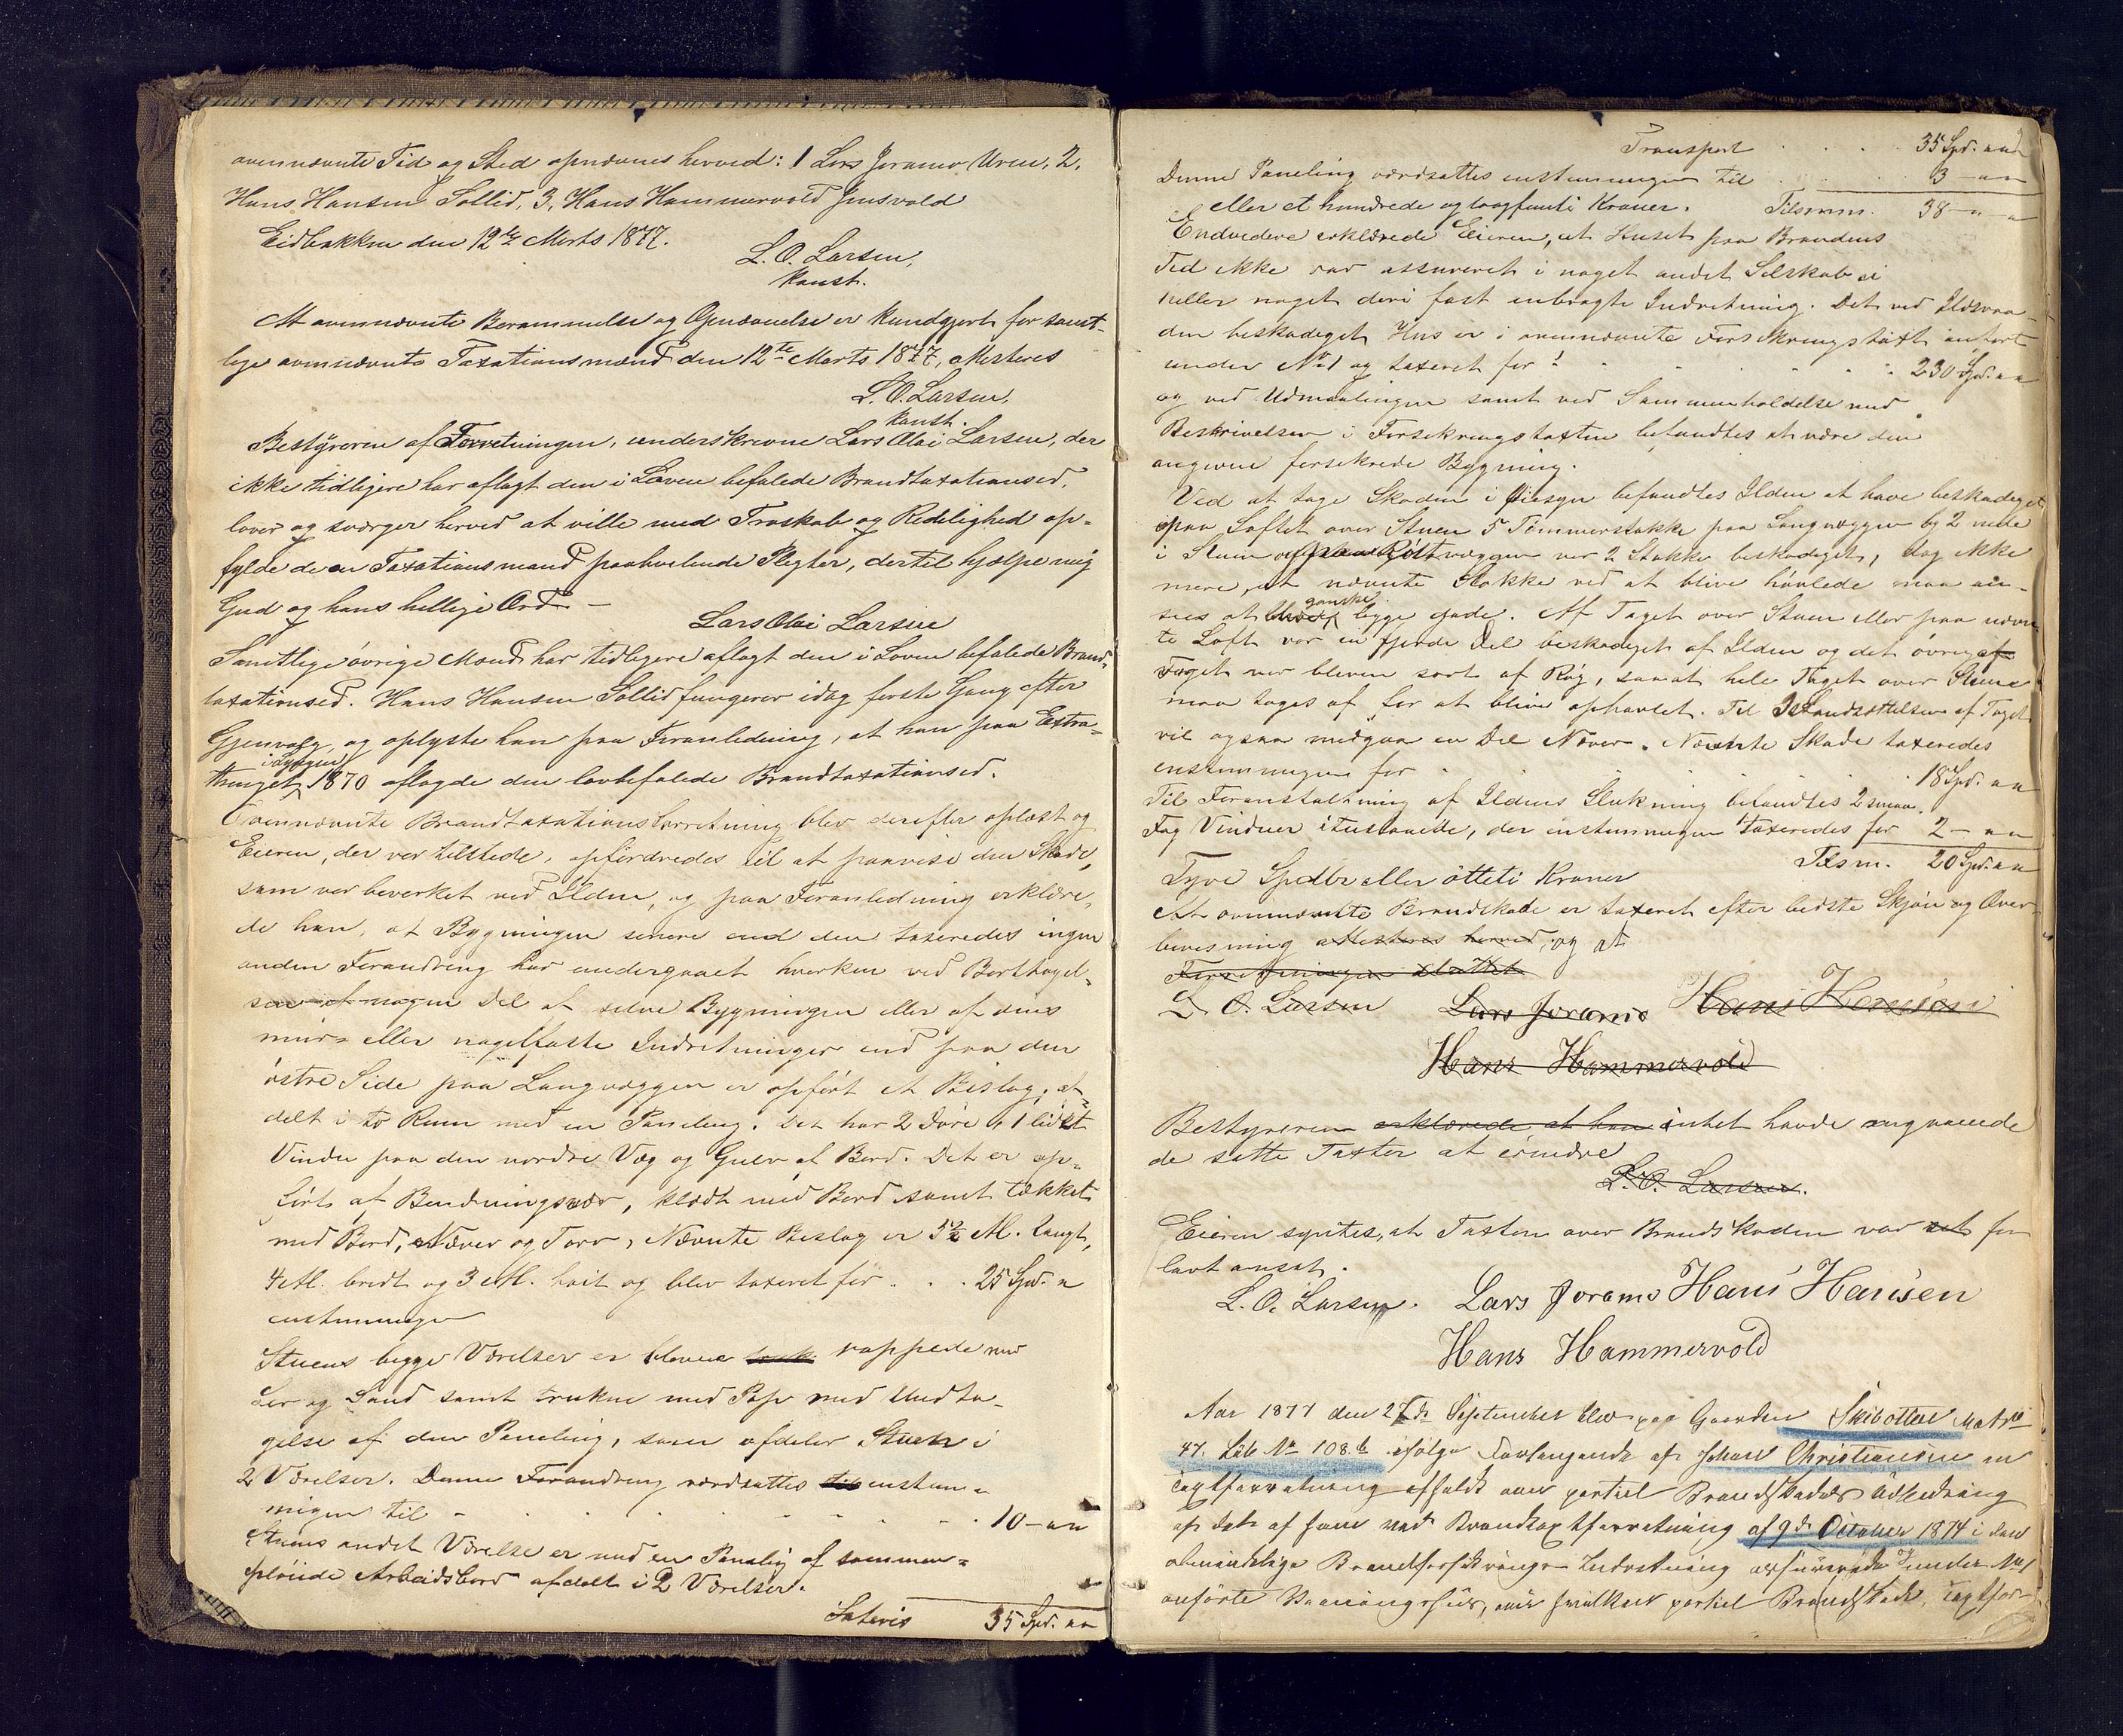 ovennævnte Tid og Sted opnævnes herved: 1 Lars Joramo Uren, 2,
Hans Hansen Sollid, 3, Hans Hammervold Jensvold
Eidbakken den 12te Marts 1877.
L. O. Larsen,
konst.
At ovennævnte Berammelse og Opnævnelse er kundgjort for samt-
lige ovennævnte Taxationsmænd den 12te Marts 1877, attesteres
L. O. Larsen,
konst.
Bestyreren af Forretningen, underskrevne Lars Olai Larsen, der
ikke tidligere har aflagt den i Loven befalede Brandtaxationsed,
lover og sværger herved at ville med Troskab og Redelighed op-
fylde de en Taxationsmand paahvilende Pligter, dertil hjælpe mig
Gud og hans hellige Ord. –
Lars Olai Larsen
Samtlige øvrige Mænd har tidligere aflagt den i Loven befalede Brand-
taxationsed. Hans Hansen Sollid fungerer idag første Gang efter
Gjenvalg, og oplyste han paa Foranledning, at han paa Extra-
i Lyngen
thinget 1870 aflagde den lovbefalede Brandtaxationsed.
Ovennævnte Brandtaxationsforretning blev derefter oplæst og
Eieren, der var tilstede, opfordredes til at paavise den Skade,
som var bevirket ved Ilden, og paa Foranledning erklære-
de han, at Bygningen senere end den taxeredes ingen
anden Forandring har undergaaet hverken ved Borttagel-
sen af nogen Del af selve Bygningen eller af dens
mur- eller nagelfaste Indretninger end paa den
østre Side paa Langvæggen er opført et Bislag, af-
delt i to Rum med en Paneling. Det har 2 Døre og 1 lidet
Vindu paa den nordre Væg og Gulv af Bord. Det er op-
ført af Bindningsvær, klædt med Bord samt tækket
med Bord, Næver og Torv, Nævnte Bislag er 5½ Al. langt,
4 Al. bredt og 3 Al. høit og blev taxeret for . . . 25 Spd. "
enstemmigen
Stuens begge Værelser er bleven rappede med
Ler og Sand samt trukne med Pap med Undta-
gelse af den Paneling, som afdeler Stuen i
2 Værelser. Denne Forandring værdsattes til enstem-
migen til . . . . . . . . . 10 – " "
Stuens andet Værelse er med en Paneling af sammen-
pløiede Arbeidsbord afdelt i 2 Værelser.
Lateris 35 Spd. " "
Transport . . . . 35 Spd. " "
Denne Paneling værdsattes enstemmigen til . . . 3 – " "
eller et hundrede og toogfemti Kroner. Tilsmm. 38 – " – "
Endvidere erklærede Eieren, at Huset paa Brandens
Tid ikke var assureret i noget andet Selskab ei
heller noget deri fast indbragte Indretning. Det ved Ildsvaa-
den beskadiget Hus er i ovennævnte Forsikringstaxt anført
under No 1 og taxeret for : . . . . . 230 Spd. " "
og ved Udmaalingen samt ved Sammenholdelse med
Beskrivelsen i Forsikringstaxten befandtes at være den
angivne forsikrede Bygning.
Ved at tage Skaden i Øiesyn befandtes Ilden at have beskadiget
paa Loftet over Stuen 5 Tømmerstokke paa Langvæggen og 2 nede
i Stuen og Røstvæggen var 2 Stokke beskadiget, dog ikke
mere, at nævnte Stokke ved at blive høvlede maa an-
ganske
sees at blive ligge gode. Af Taget over Stuen eller paa nævn-
te Loft var en fjerde Del beskadiget af Ilden og det øvrige af
Taget var bleven sort af Røg, saa at hele Taget over Stuen
maa tages af for at blive ophøvlet. Til Istandsættelsen af Taget
vil ogsaa medgaa en Del Næver. Nævnte Skade taxeredes
enstemmigen for . . . 18 Spd. " "
Til Foranstaltning af Ildens Slukning befandtes 2 smaa
Fag Vinduer itusonede, der enstemmigen taxeredes for 2 – " "
Tilsm. 20 Spd. " "
Tyve Spdlr eller otteti Kroner
At ovennævnte Brandskade er taxeret efter bedste Skjøn og Over-
bevisning attesteres herved, og at
Forretningen sluttet
L. O. Larsen Lars Joramo Hans Hansen
Hans Hammervold
Bestyreren erklærede at han intet havde angaaende
de satte Taxter at erindre
L. O. Larsen.
Eieren syntes, at Taxten over Brandskaden var sat for
lavt ansat.
L. O. Larsen. Lars Joramo Hans Hansen
Hans Hammervold
Aar 1877 den 27de September blev paa Gaarden Skibotten Matr No
47. Løb No 108 b ifølge Forlangende af Johan Christiansen en
Taxtforretning afholdt over partiel Brandskades Udstrækning
paa det af ham ved Brandtaxtforretning af 9de October 1874 i den
almindelige Brandforsikrings Indretning assurerede og under No 1
anførte Vaaningshus, over hvilket partiel Brandskade Taxtfor-